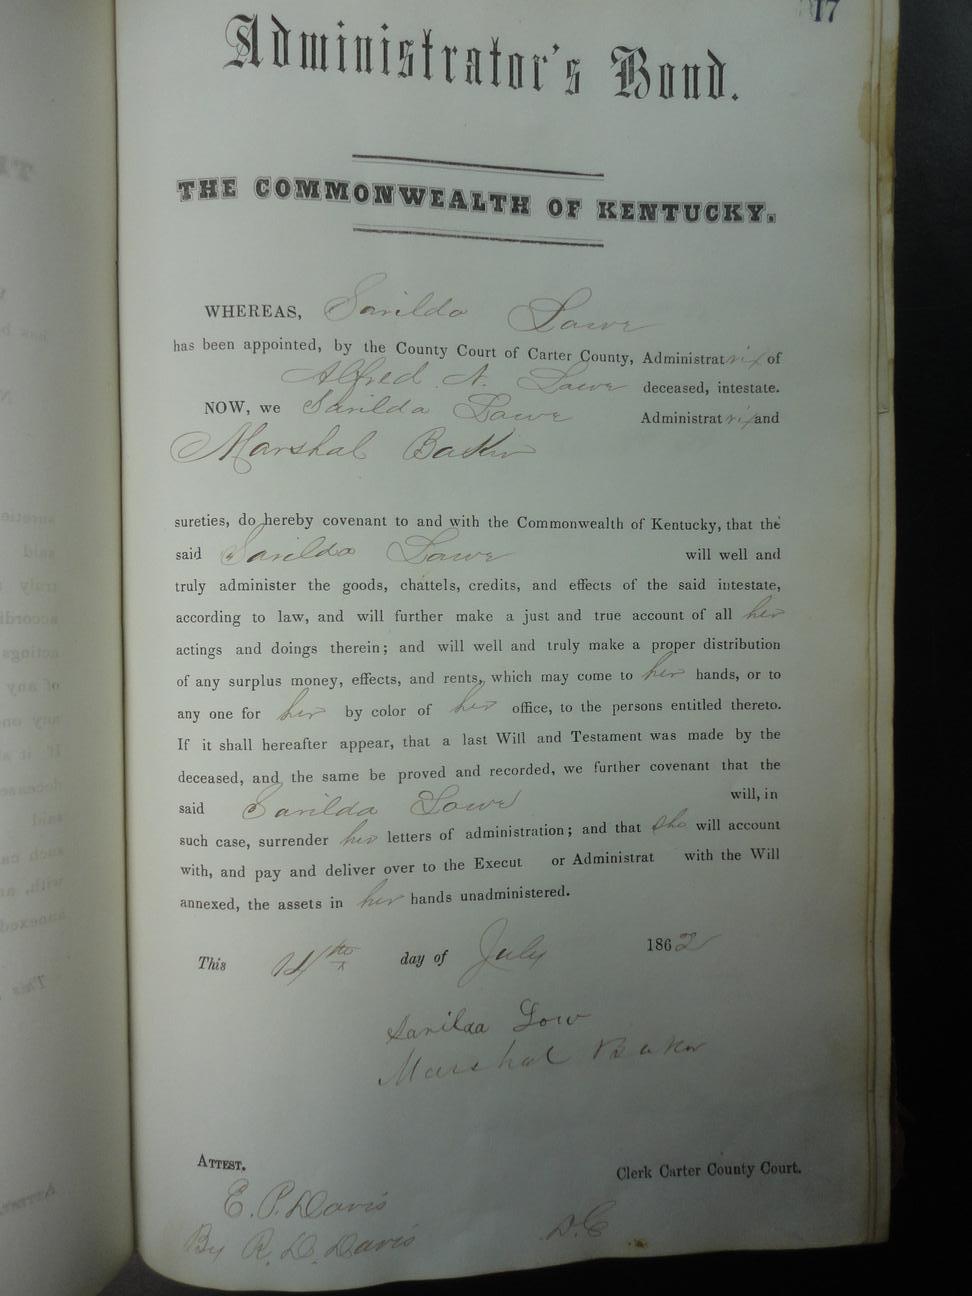 17
Administrator's Bond.
THE COMMONWEALTH OF KENTUCKY.
WHEREAS, Sarilda Lowe
has been appointed, by the County Court of Carter County, Administratrix of
Alfred N. Lowe deceased, intestate.
NOW, we Sarilda Lowe Administratrix and
Marshal Baker
sureties, do hereby covenant to and with the Commonwealth of Kentucky, that the
said Sarilda Lowe will well and
truly administer the goods, chattels, credits, and effects of the said intestate,
according to law, and will further make a just and true account of all her
actings and doings therein; and will well and truly make a proper distribution
of any surplus money, effects, and rents, which may come to her hands, or to
any one for her by color of her office, to the persons entitled thereto.
If it shall hereafter appear, that a last Will and Testament was made by the
deceased, and the same be proved and recorded, we further covenant that the
said Sarilda Lowe will, in
such case, surrender her letters of administration; and that she will account
with, and pay and deliver over to the Execut or Administrat with the Will
annexed, the assets in her hands unadministered.
This 14th day of July 1862
Sarilda Low
Marshal Baker
ATTEST.
Clerk Carter County Court.
E. P. Davis
By R. D. Davis D.C